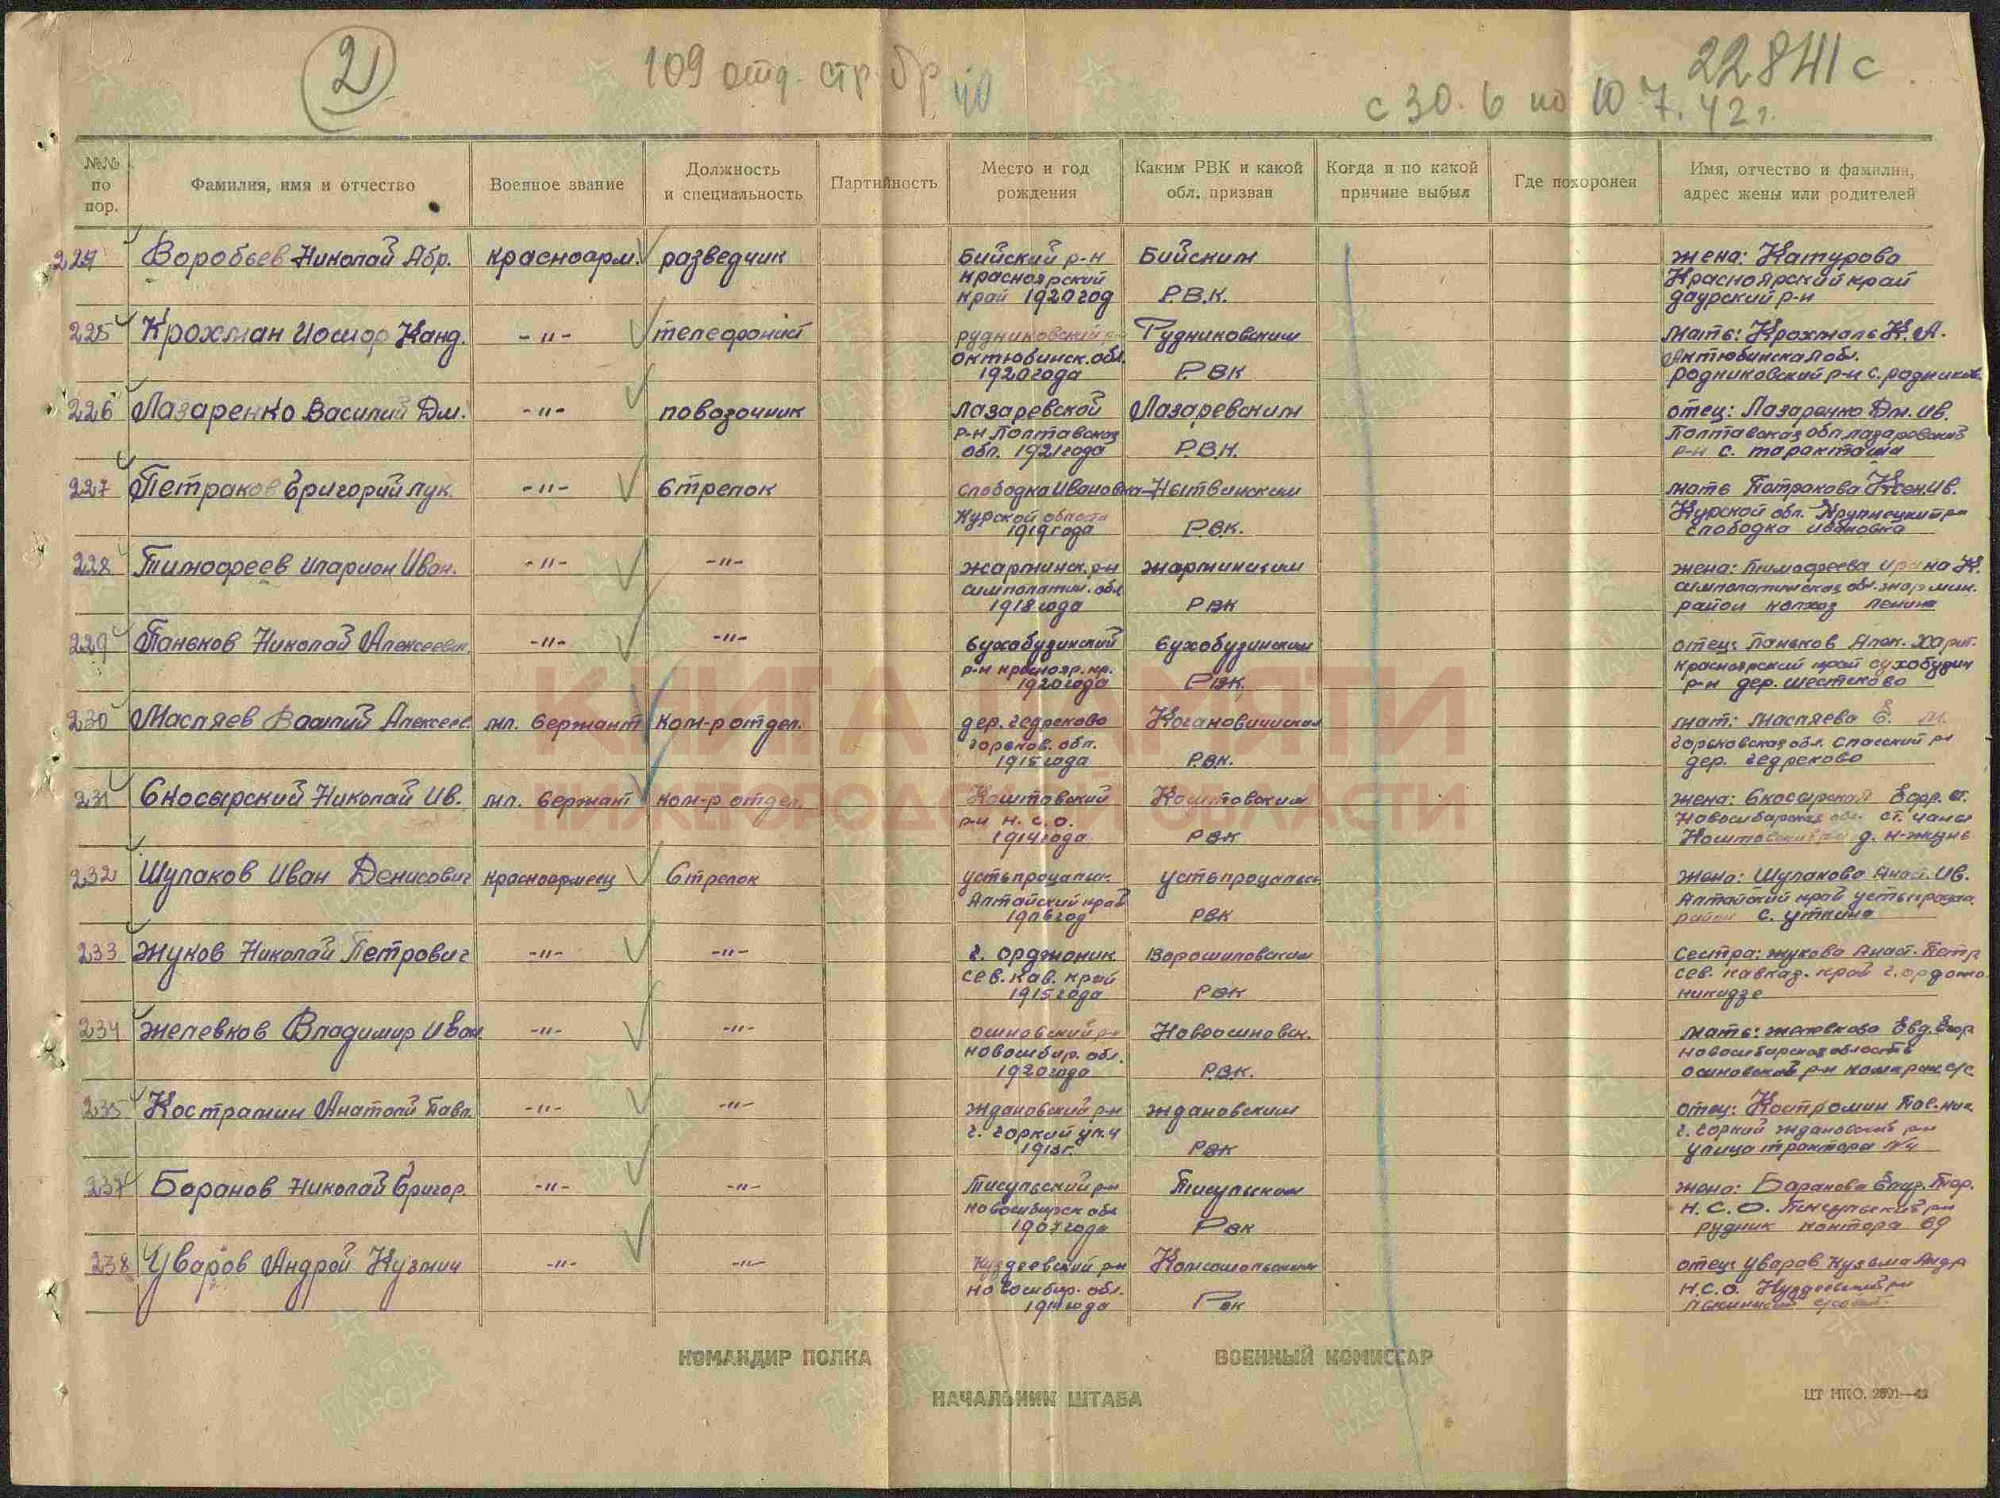 2
109 отд. стр. бр
40
22841 с
с 30.6 по 10.7.42 г.
№№ по пор.
Фамилия, имя и отчество
Военное звание
Должность и специальность
Партийность
Место и год рождения
Каким РВК и какой обл. призван
Когда и по какой причине выбыл
Где похоронен
Имя, отчество и фамилия, адрес жены или родителей
224 Воробьев Николай Абр. красноарм. разведчик Бийский р-н Бийским жена: Катурова
красноярский Красноярский край
край 1920 год Р.В.К. даурский р-н
225 Крохман Иосиф Канд. -"- телефонист рудниковский р-н Рудниковским мать: Крохмаль К.А.
октюбинск. обл. Актюбинская обл.
1920 года РВК родниковский р-н с. родников.
226 Лазаренко Василий Дм. -"- повозочник Лазаревской Лазаревским отец: Лазаренко Дм. Ив.
р-н Полтавская Полтавская обл. лазаревский
обл. 1921 года Р.В.К. р-н с.
227 Петраков Григорий Лук. -"- Стрелок слободка Ивановка Нытвинским мать Петракова Ксен. Ив.
Курской области Курской обл.
1919 года Р.В.К. слободка ивановка
228 Тимофеев Иларион Иван. -"- -"- жарминск. р-н жарминским жена: Тимофеева Ирина К.
симполатин. обл. симполатинская обл. жармин.
1918 года РВК район колхоз Ленина
229 Паньков Николай Алексеевич -"- -"- Сухобузинский Сухобузинским отец: Паньков Алек. Харит.
р-н краснояр. кр. Красноярский край сухобузин
1920 года РВК. р-н дер. шестаково
230 Масляев Василий Алексеев. мл. Сержант ком-р отдел. дер. гедреково мат: Масляева Е.
горьков. обл. Горьковская обл. Спасский р-н
1915 года Р.В.К. дер. гедреково
231 Скосырский Николай Ив. мл. Сержант ком-р отдел. Коштовский Коштовским жена: Скосырская
р-н Н.С.О. Новосибирская обл. ст. чаны
1914 года РВК д. н-жизнь
232 Шулаков Иван Денисович красноармеец Стрелок жена: Шулакова Анаст. Ив.
Алтайский край Алтайский край
1906 год РВК район с. уткина
233 Жуков Николай Петрович -"- -"- г. орджоник. Ворошиловским Сестра: жукова Анаст. Петр
сев. Кав. край сев. кавказ. край г. орджо
1915 года РВК никидзе
234 Желевков Владимир Иван. -"- -"- осиновский р-н Новоосиновск. мать: желевкова Евд. Егор
новосибир. обл. новосибирская область
1920 года Р.В.К. осиновский р-н с/с
235 Костромин Анатолий Павл. -"- -"- ждановский р-н ждановским отец: Костромин Пав. Ник
г. горкий ул. 4 г. горкий ждановский р-н
РВК улица трактора №4
237 Боранов Николай Григор. -"- -"- Тисульский р-н Тисульским жена: Баранова
новосибирск обл Н.С.О. Тисульский р-н
1907 года РВК рудник контора 69
238 Уваров Андрей Кузмич -"- -"- Куздеевский р-н Комсомольским отец: Уваров Кузьма Андр
новосибир. обл. Н.С.О. Куздеевский р-н
РВК
КНИГА ПАМЯТИ
НИЖЕГОРОДСКОЙ ОБЛАСТИ
КОМАНДИР ПОЛКА
ВОЕННЫЙ КОМИССАР
НАЧАЛЬНИК ШТАБА
ЦТ НКО. 2591—42
ПАМЯТЬ НАРОДА